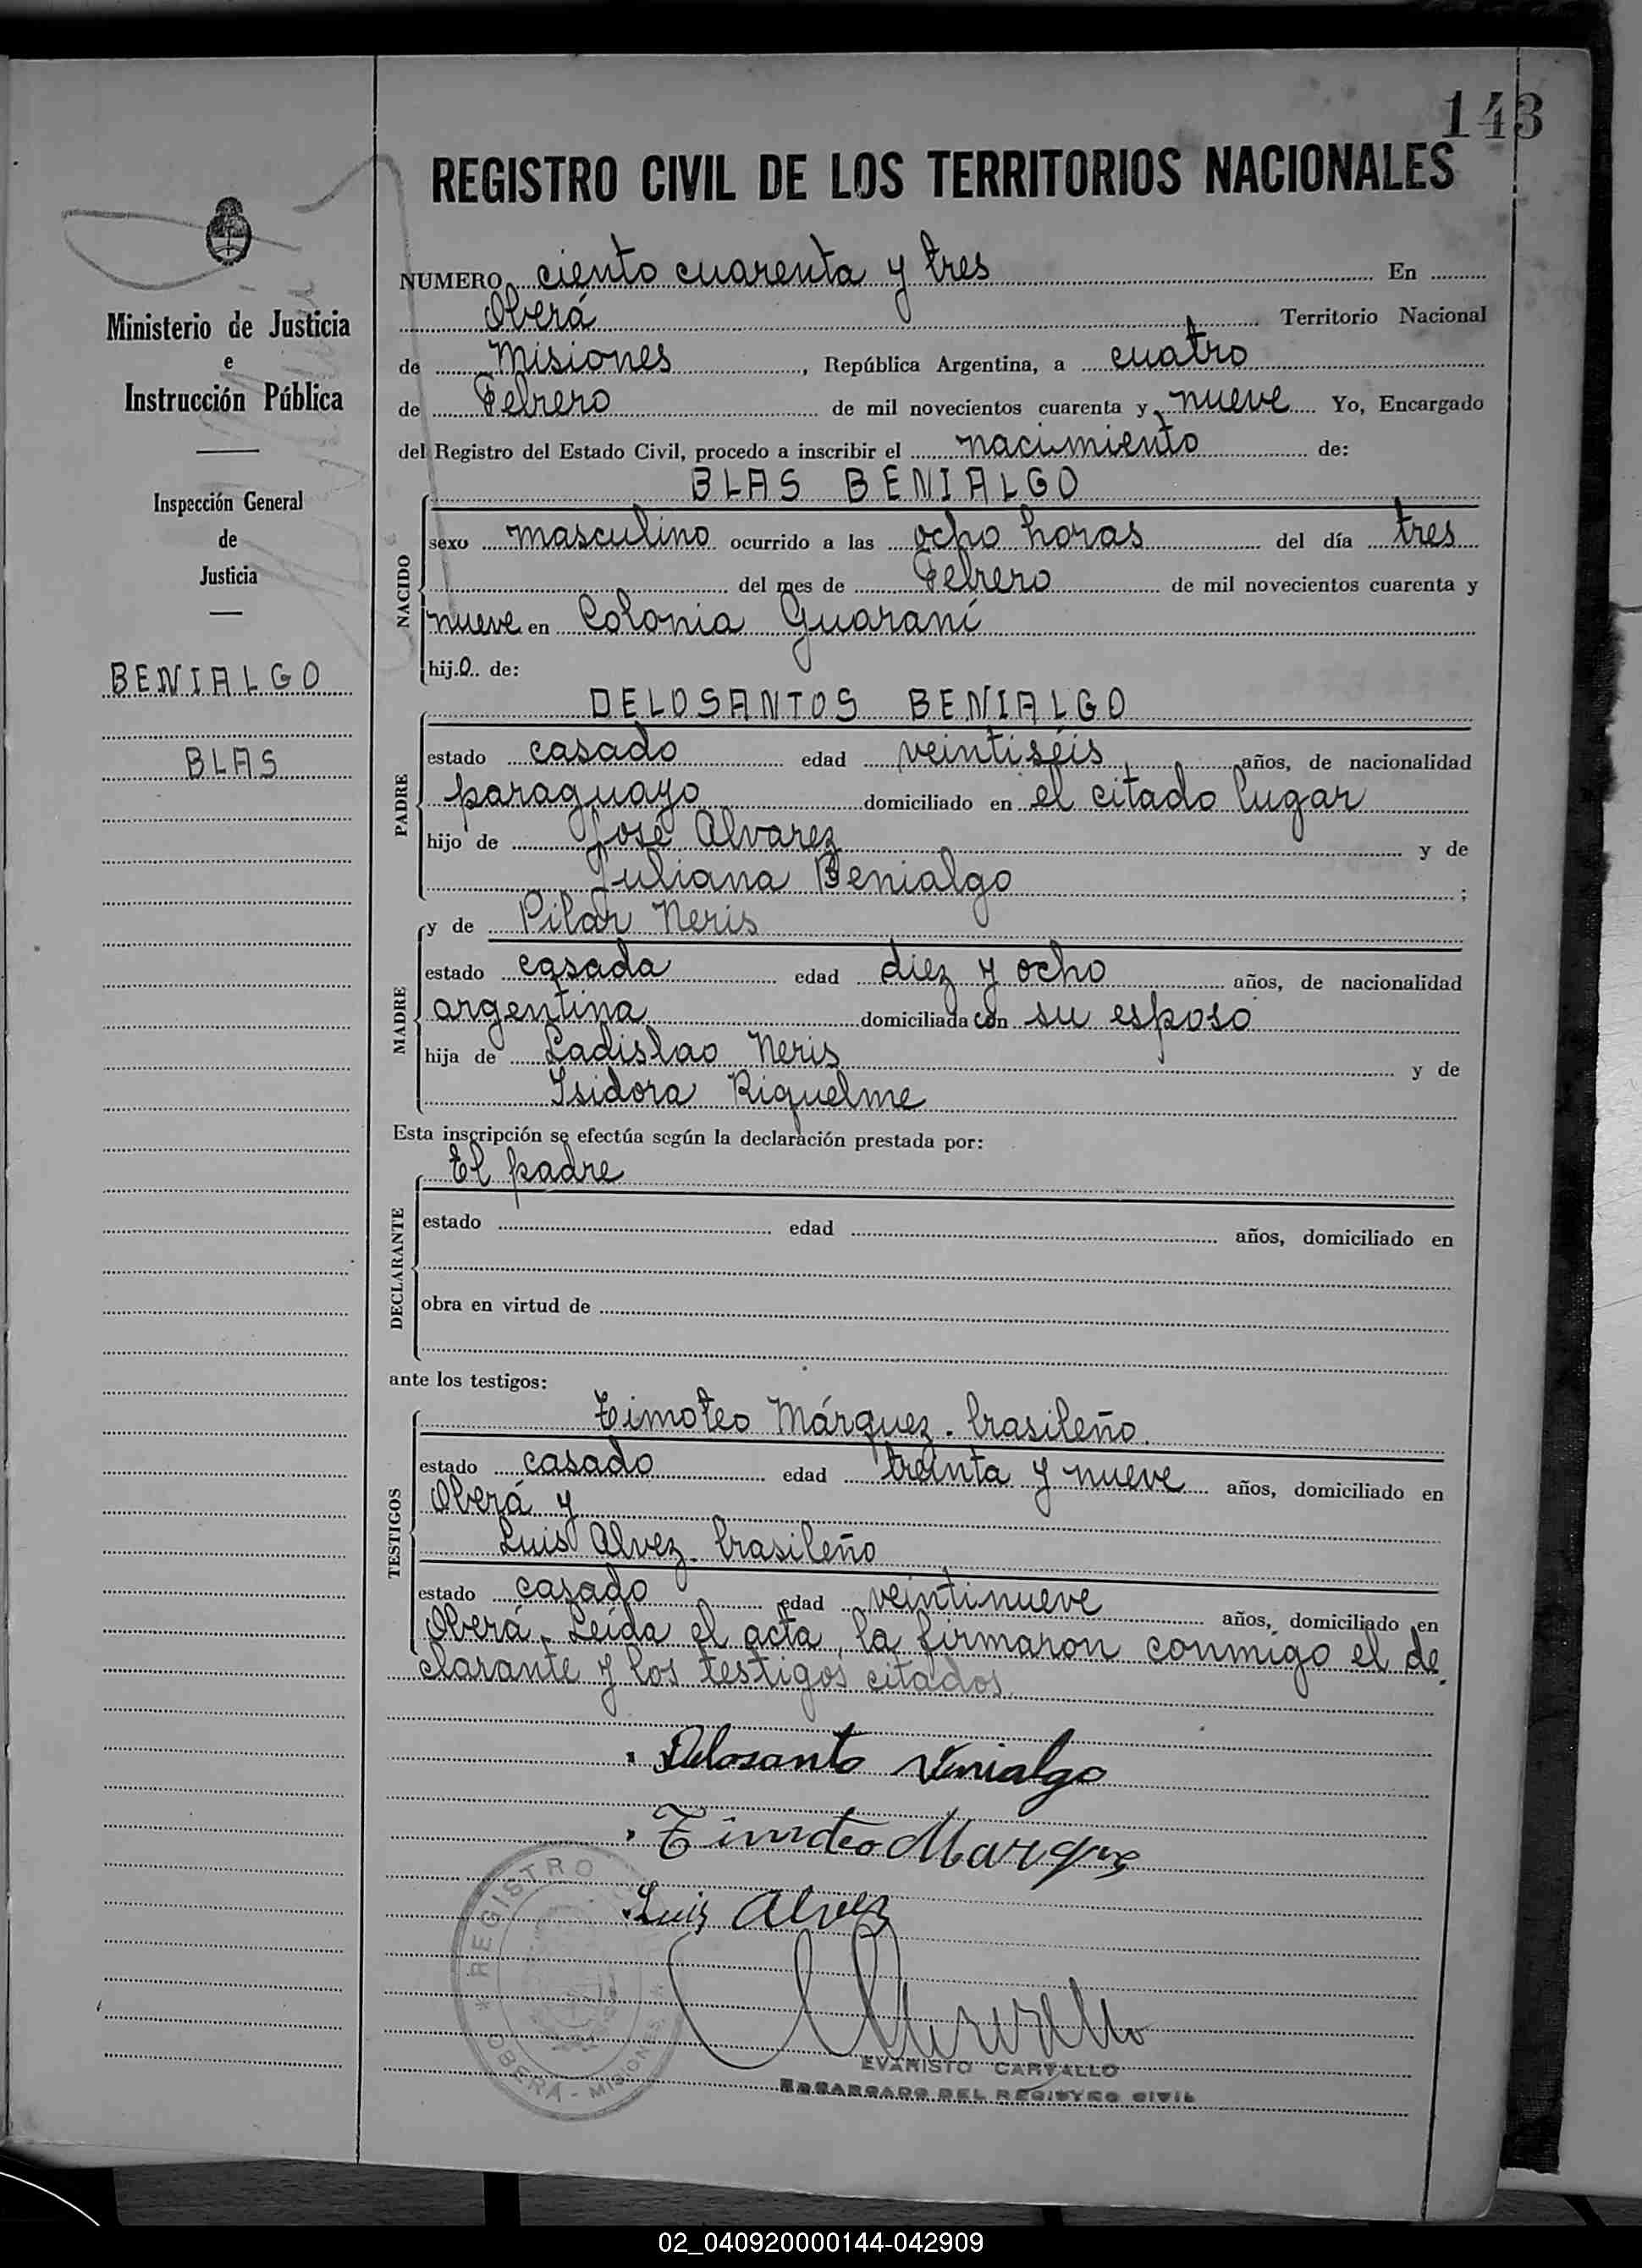 143
REGISTRO CIVIL DE LOS TERRITORIOS NACIONALES
Ministerio de Justicia
e
Instrucción Pública
Inspección General
de
Justicia
BENIALGO
BLAS
NUMERO ciento cuarenta y tres En
Oberá Territorio Nacional
de Misiones, República Argentina, a cuatro
de Febrero de mil novecientos cuarenta y nueve Yo, Encargado
del Registro del Estado Civil, procedo a inscribir el nacimiento de:
NACIDO
BLAS BENIALGO
sexo masculino ocurrido a las ocho horas del día tres
del mes de Febrero de mil novecientos cuarenta y
nueve en Colonia Guaraní
hijo de:
PADRE
DELOSANTOS BENIALGO
estado casado edad veintiséis años, de nacionalidad
paraguayo domiciliado en el citado lugar
hijo de José Alvarez y de
Juliana Benialgo ;
MADRE
y de Pilar Neris
estado casada edad diez y ocho años, de nacionalidad
argentina domiciliada con su esposo
hija de Ladislao Neris y de
Isidora Riquelme
Esta inscripción se efectúa según la declaración prestada por:
DECLARANTE
El padre
estado edad años, domiciliado en
obra en virtud de
ante los testigos:
TESTIGOS
Timoteo Márquez - brasileño.
estado casado edad treinta y nueve años, domiciliado en
Oberá y
Luis Alvez - brasileño
estado casado edad veintinueve años, domiciliado en
Oberá. Leída el acta, la firmaron conmigo el de
clarante y los testigos citados.
Delosanto Venialgo
Timoteo Marques
Luiz Alvez
REGISTRO
OBERÁ - MISIONES
EVARISTO CARVALLO
ENCARGADO DEL REGISTRO CIVIL
02_040920000144-042909